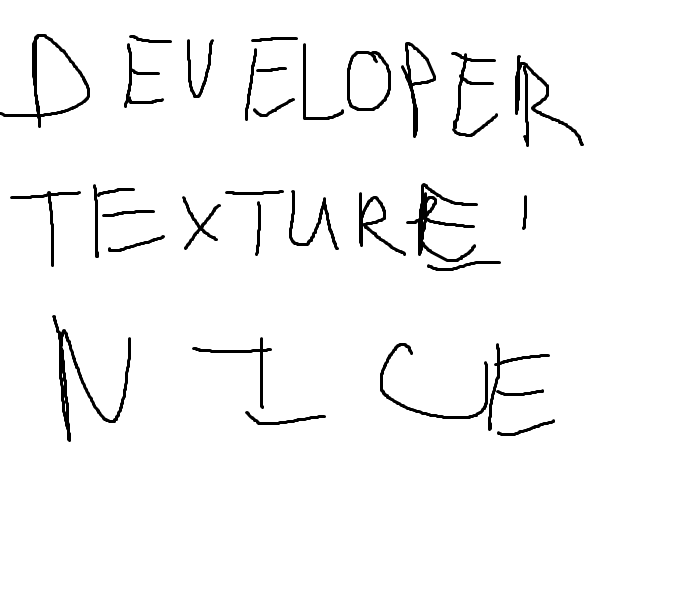 DEVELOPER
TEXTURE'
NICE